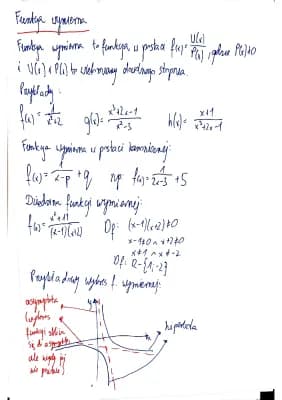 Funkcja wymierna
Funkcja wymierna to funkcja w postaci f(x)= V(x)/P(x), gdzie P(x)≠0
i V(x) i P(x) to wielomiany dowolnego stopnia.
Przykłady:
f(x)= 1/x²+2 g(x)= x³+2x-1/x²-3 h(x)= x+1/x³+2x-1
Funkcja wymierna w postaci kanonicznej:
f(x)= 1/x-p +q np. f(x)= 1/2x-3 +5
Dziedzina funkcji wymiernej:
f(x)= x²+11/(x-1)(x+2) Df: (x-1)(x+2)≠0
x-1≠0 ∧ x+2≠0
x≠1 ∧ x≠-2
Df: R-{1;-2}
Przykładowy wykres f. wymiernej:
asymptota
(wykres
funkcji zbliża
się do asymptoty
ale nigdy jej
nie przetnie)
y
x
hiperbola